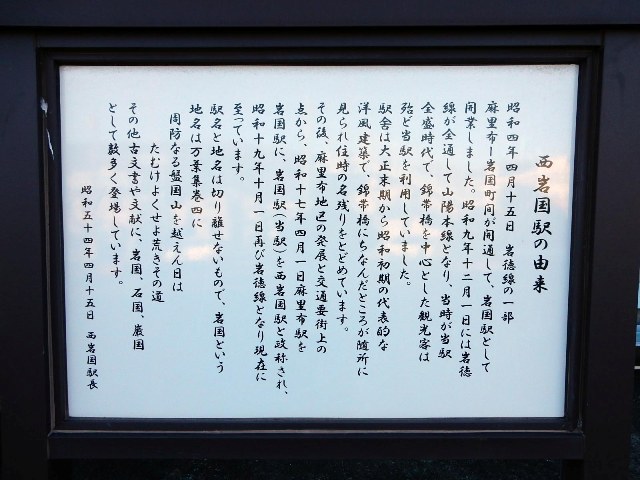 西岩国駅の由来
昭和四年四月十五日　岩徳線の一部
麻里布ー岩国町間が開通して、岩国駅として
開業しました。昭和九年十二月一日には岩徳
線が全通して山陽本線となり、当時が当駅
全盛時代で、錦帯橋を中心とした観光客は
殆ど当駅を利用していました。
駅舎は大正末期から昭和初期の代表的な
洋風建築で、錦帯橋にちなんだところが随所に
見られ往時の名残りをとどめています。
その後、麻里布地区の発展と交通要衝上の
点から、昭和十七年四月一日麻里布駅を
岩国駅に、岩国駅(当駅)を西岩国駅と改称され、
昭和十九年十月一日再び岩徳線となり現在に
至っています。
駅名と地名は切り離せないもので、岩国という
地名は万葉集巻四に
周防なる盤国山を越えん日は
たむけよくせよ荒きその道
その他古文書や文献に、岩国、石国、巌国
として数多く登場しています。
昭和五十四年四月十五日　西岩国駅長